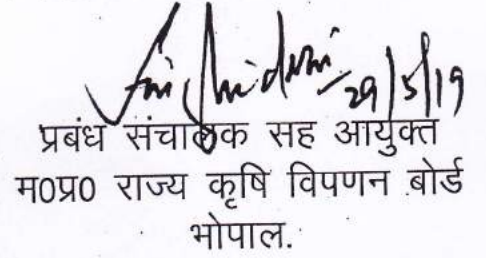 29/5/19
प्रबंध संचालक सह आयुक्त
म0प्र0 राज्य कृषि विपणन बोर्ड
भोपाल.